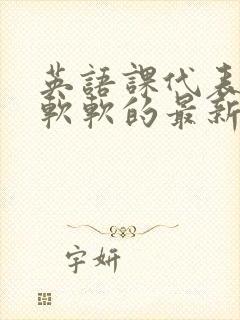 英語課代表
軟軟的最新
字妍